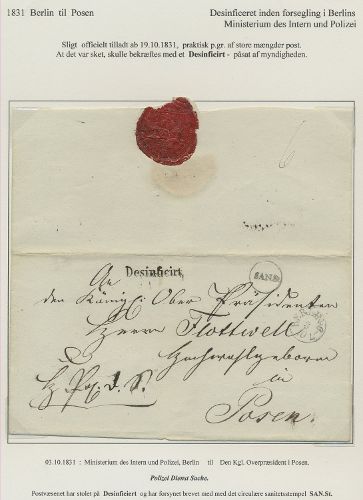 1831 Berlin til Posen
Desinficeret inden forsegling i Berlins
Ministerium des Intern und Polizei
Sligt officielt tilladt ab 19.10.1831, praktisk p.gr. af store mængder post.
At det var sket, skulle bekræftes med et Desinficirt - påsat af myndigheden.
6
Desinficirt
SAN.St
An
den Königl: Ober Präsidenten
Herrn Flottwell
Hochwohlgeboren
in
Posen.
03.10.1831 : Ministerium des Intern und Polizei, Berlin til Den Kgl. Overpræsident i Posen.
Polizei Dienst Sache.
Postvæsenet har stolet på Desinficiert og har forsynet brevet med med det circulære sanitetsstempel SAN.St.